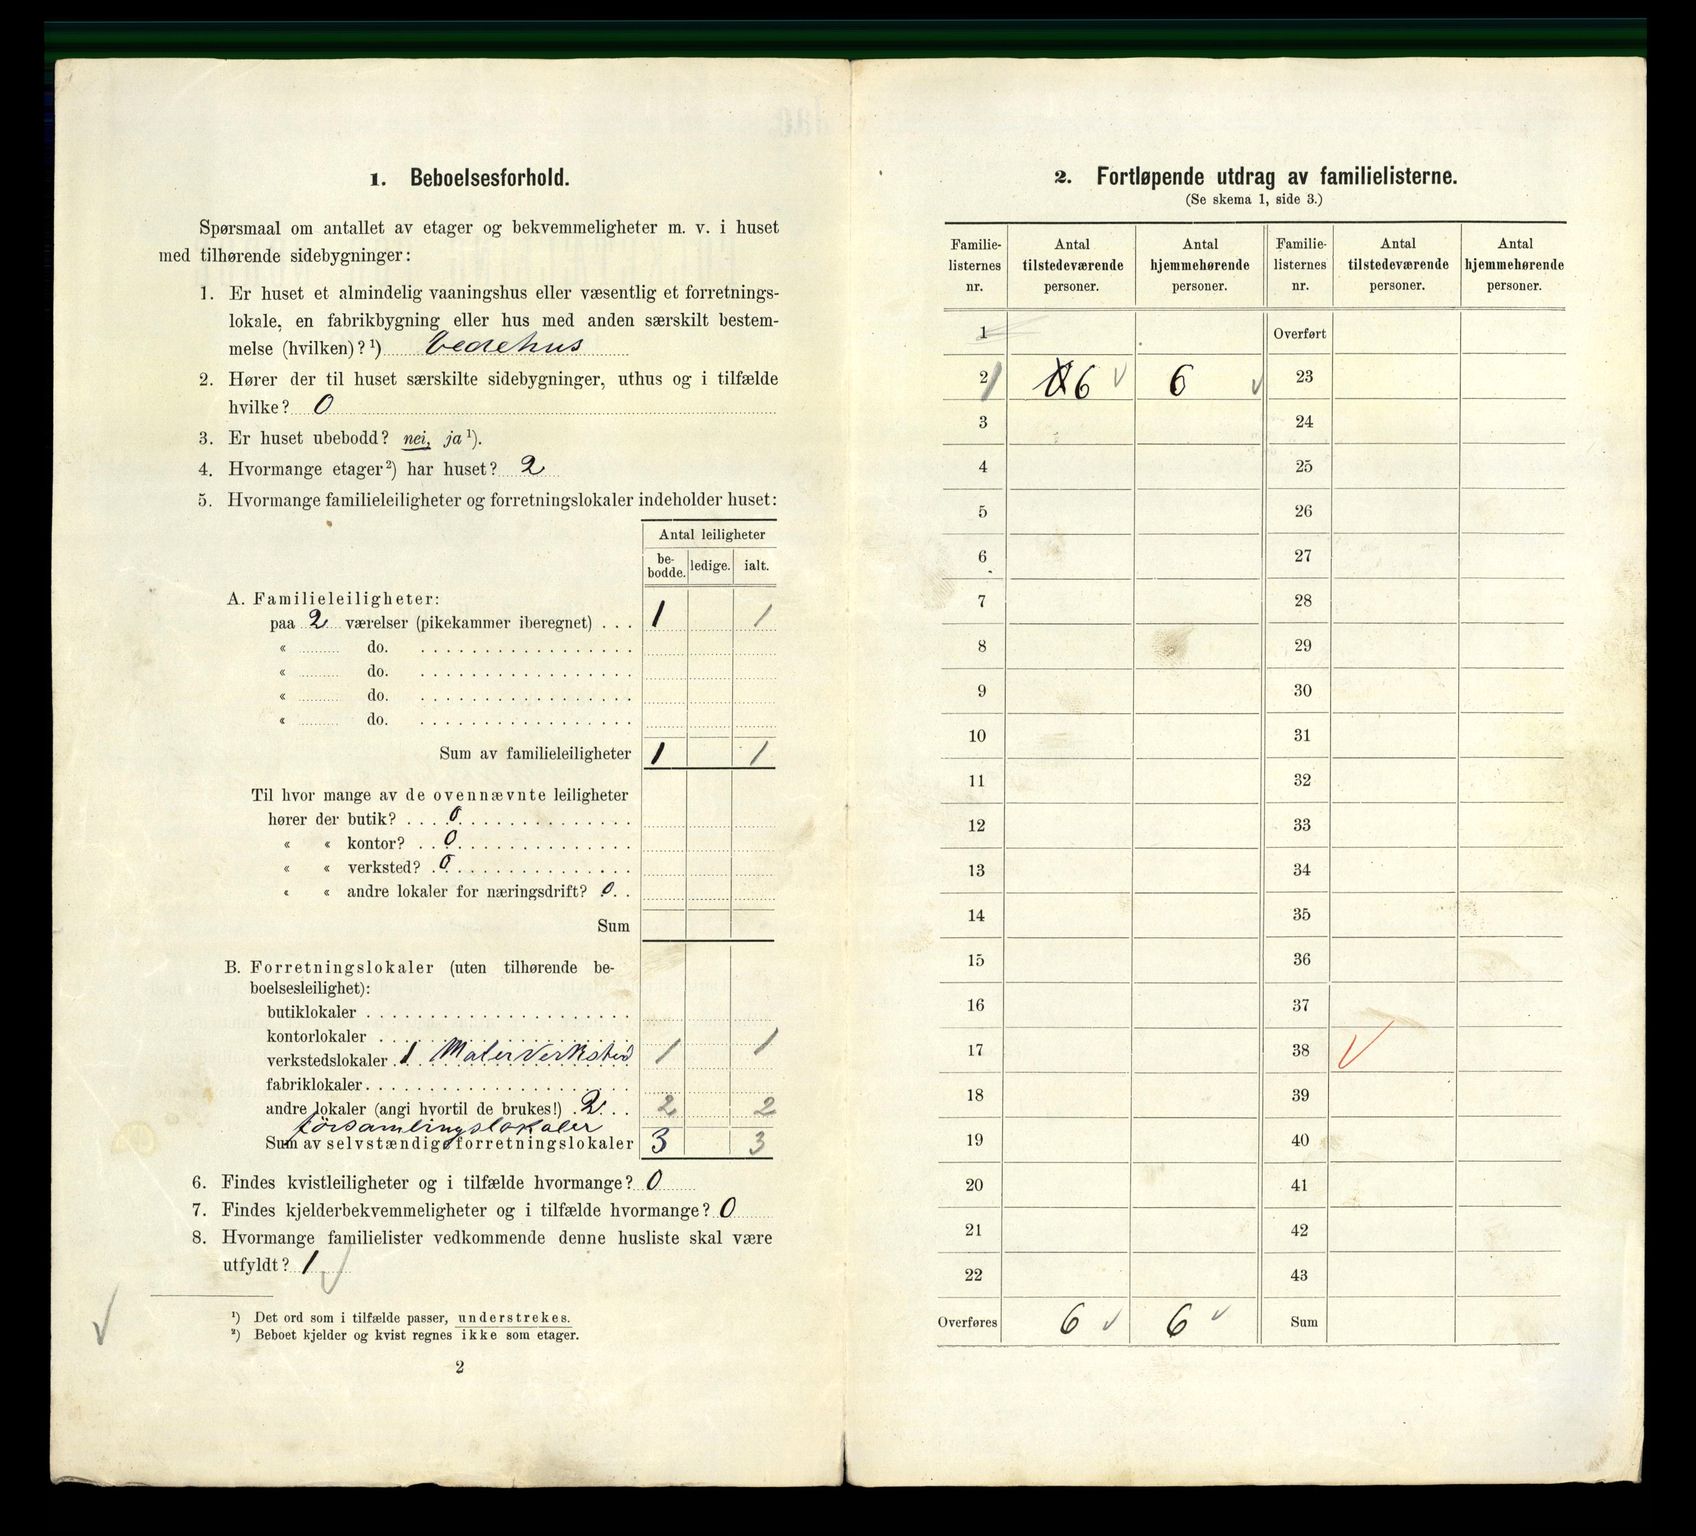 1. Beboelsesforhold.
Spørsmaal om antallet av etager og bekvemmeligheter m. v. i huset
med tilhørende sidebygninger:
1. Er huset et almindelig vaaningshus eller væsentlig et forretnings-
lokale, en fabrikbygning eller hus med anden særskilt bestem-
melse (hvilken)? 1) Bedehus
2. Hører der til huset særskilte sidebygninger, uthus og i tilfælde
hvilke? 0
3. Er huset ubebodd? nei, ja 1).
4. Hvormange etager 2) har huset? 2
5. Hvormange familieleiligheter og forretningslokaler indeholder huset:
Antal leiligheter
be-bodde. ledige. ialt.
A. Familieleiligheter:
paa 2 værelser (pikekammer iberegnet) . . . 1 1
« do.
« do.
« do.
« do.
Sum av familieleiligheter 1 1
Til hvor mange av de ovennævnte leiligheter
hører der butik? 0
« « kontor? 0
« « verksted? 0
« « andre lokaler for næringsdrift? 0
Sum
B. Forretningslokaler (uten tilhørende be-
boelsesleilighet):
butiklokaler
kontorlokaler
verkstedslokaler 1 Malerverksted 1 1
fabriklokaler
andre lokaler (angi hvortil de brukes!) 2 2 2
forsamlingslokaler
Sum av selvstændige forretningslokaler 3 3
6. Findes kvistleiligheter og i tilfælde hvormange? 0
7. Findes kjelderbekvemmeligheter og i tilfælde hvormange? 0
8. Hvormange familielister vedkommende denne husliste skal være
utfyldt? 1
1) Det ord som i tilfælde passer, understrekes.
2) Beboet kjelder og kvist regnes ikke som etager.
2
2. Fortløpende utdrag av familielisterne.
(Se skema 1, side 3.)
Familie-listernes nr. Antal tilstedeværende personer. Antal hjemmehørende personer. Familie-listernes nr. Antal tilstedeværende personer. Antal hjemmehørende personer.
1 Overført
2 1 6 6 23
3 24
4 25
5 26
6 27
7 28
8 29
9 30
10 31
11 32
12 33
13 34
14 35
15 36
16 37
17 38
18 39
19 40
20 41
21 42
22 43
Overføres 6 6 Sum